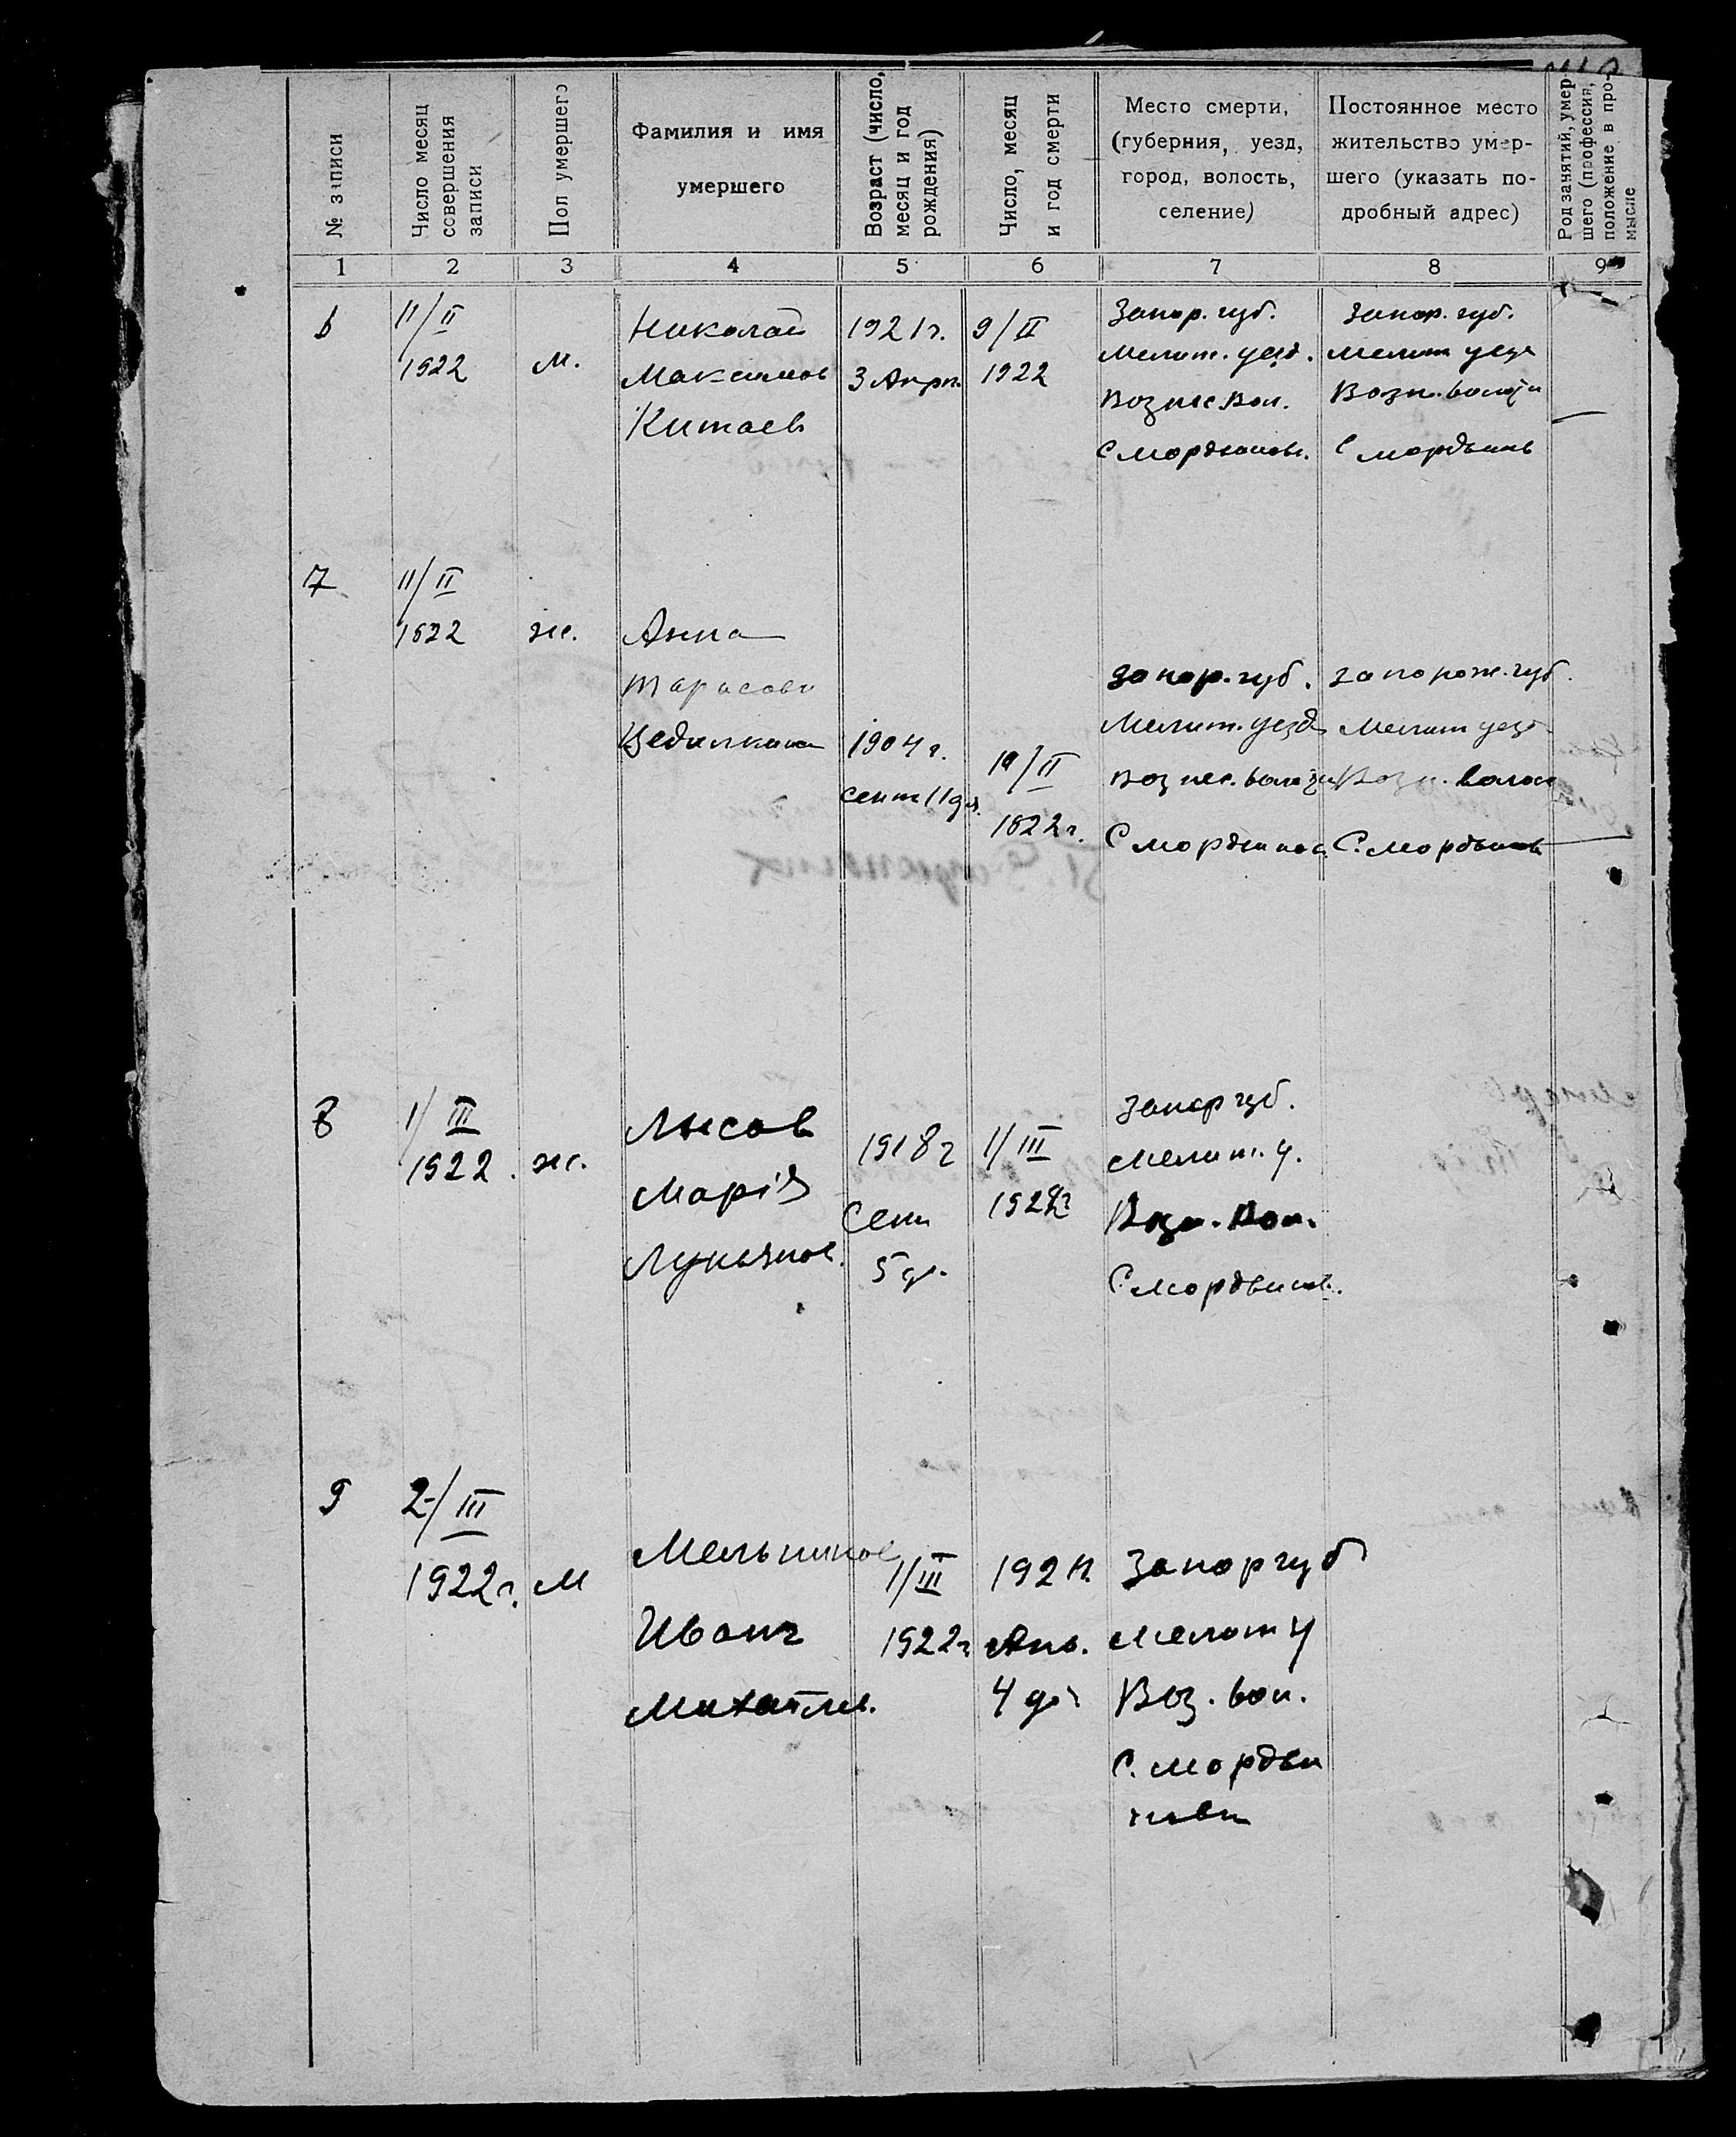 № записи
Число месяц
совершения
записи
Пол умершего
Фамилия и имя
умершего
Возраст (число,
месяц и год
рождения)
Число, месяц
и год смерти
Место смерти,
(губерния, уезд,
город, волость,
селение)
Постоянное место
жительство умер-
шего (указать по-
дробный адрес)
Род занятий, умер-
шего (профессия,
положение в про-
мысле
1 2 3 4 5 6 7 8 9
6
11/II
1922
м.
Николай
Максимов
Китаев
1921г.
3 Апрл.
9/II
1922
Запор. губ.
Мелит. уезд.
Вознес. Вол.
С Мордвинов.
Запор. губ.
Мелит уезд
Возн. волости
С Мордвинов
7
11/II
1922
ж.
Анна
Тарасова
1904 г.
сент 11 дн.
/II
1922г.
Запор. губ.
Мелит. уезд
Вознес. волости
С Мордвинов.
Запорож. губ.
Мелит уезд
Возн. волос
С. Мордвинов
8
1/III
1922.
ж.
Лысов
Марія
Лукьянов.
1918 г
Сент
5 дн.
1/III
1922г
Запор губ.
Мелит. у.
Возн. Вол.
С. Мордвинов.
9
2/III
1922г.
м
Мельников
Иванъ
Михайлов.
1/III
1922г
192
4 дн
Запор губ
Мелит у
Воз. вол.
С. Мордви
новки